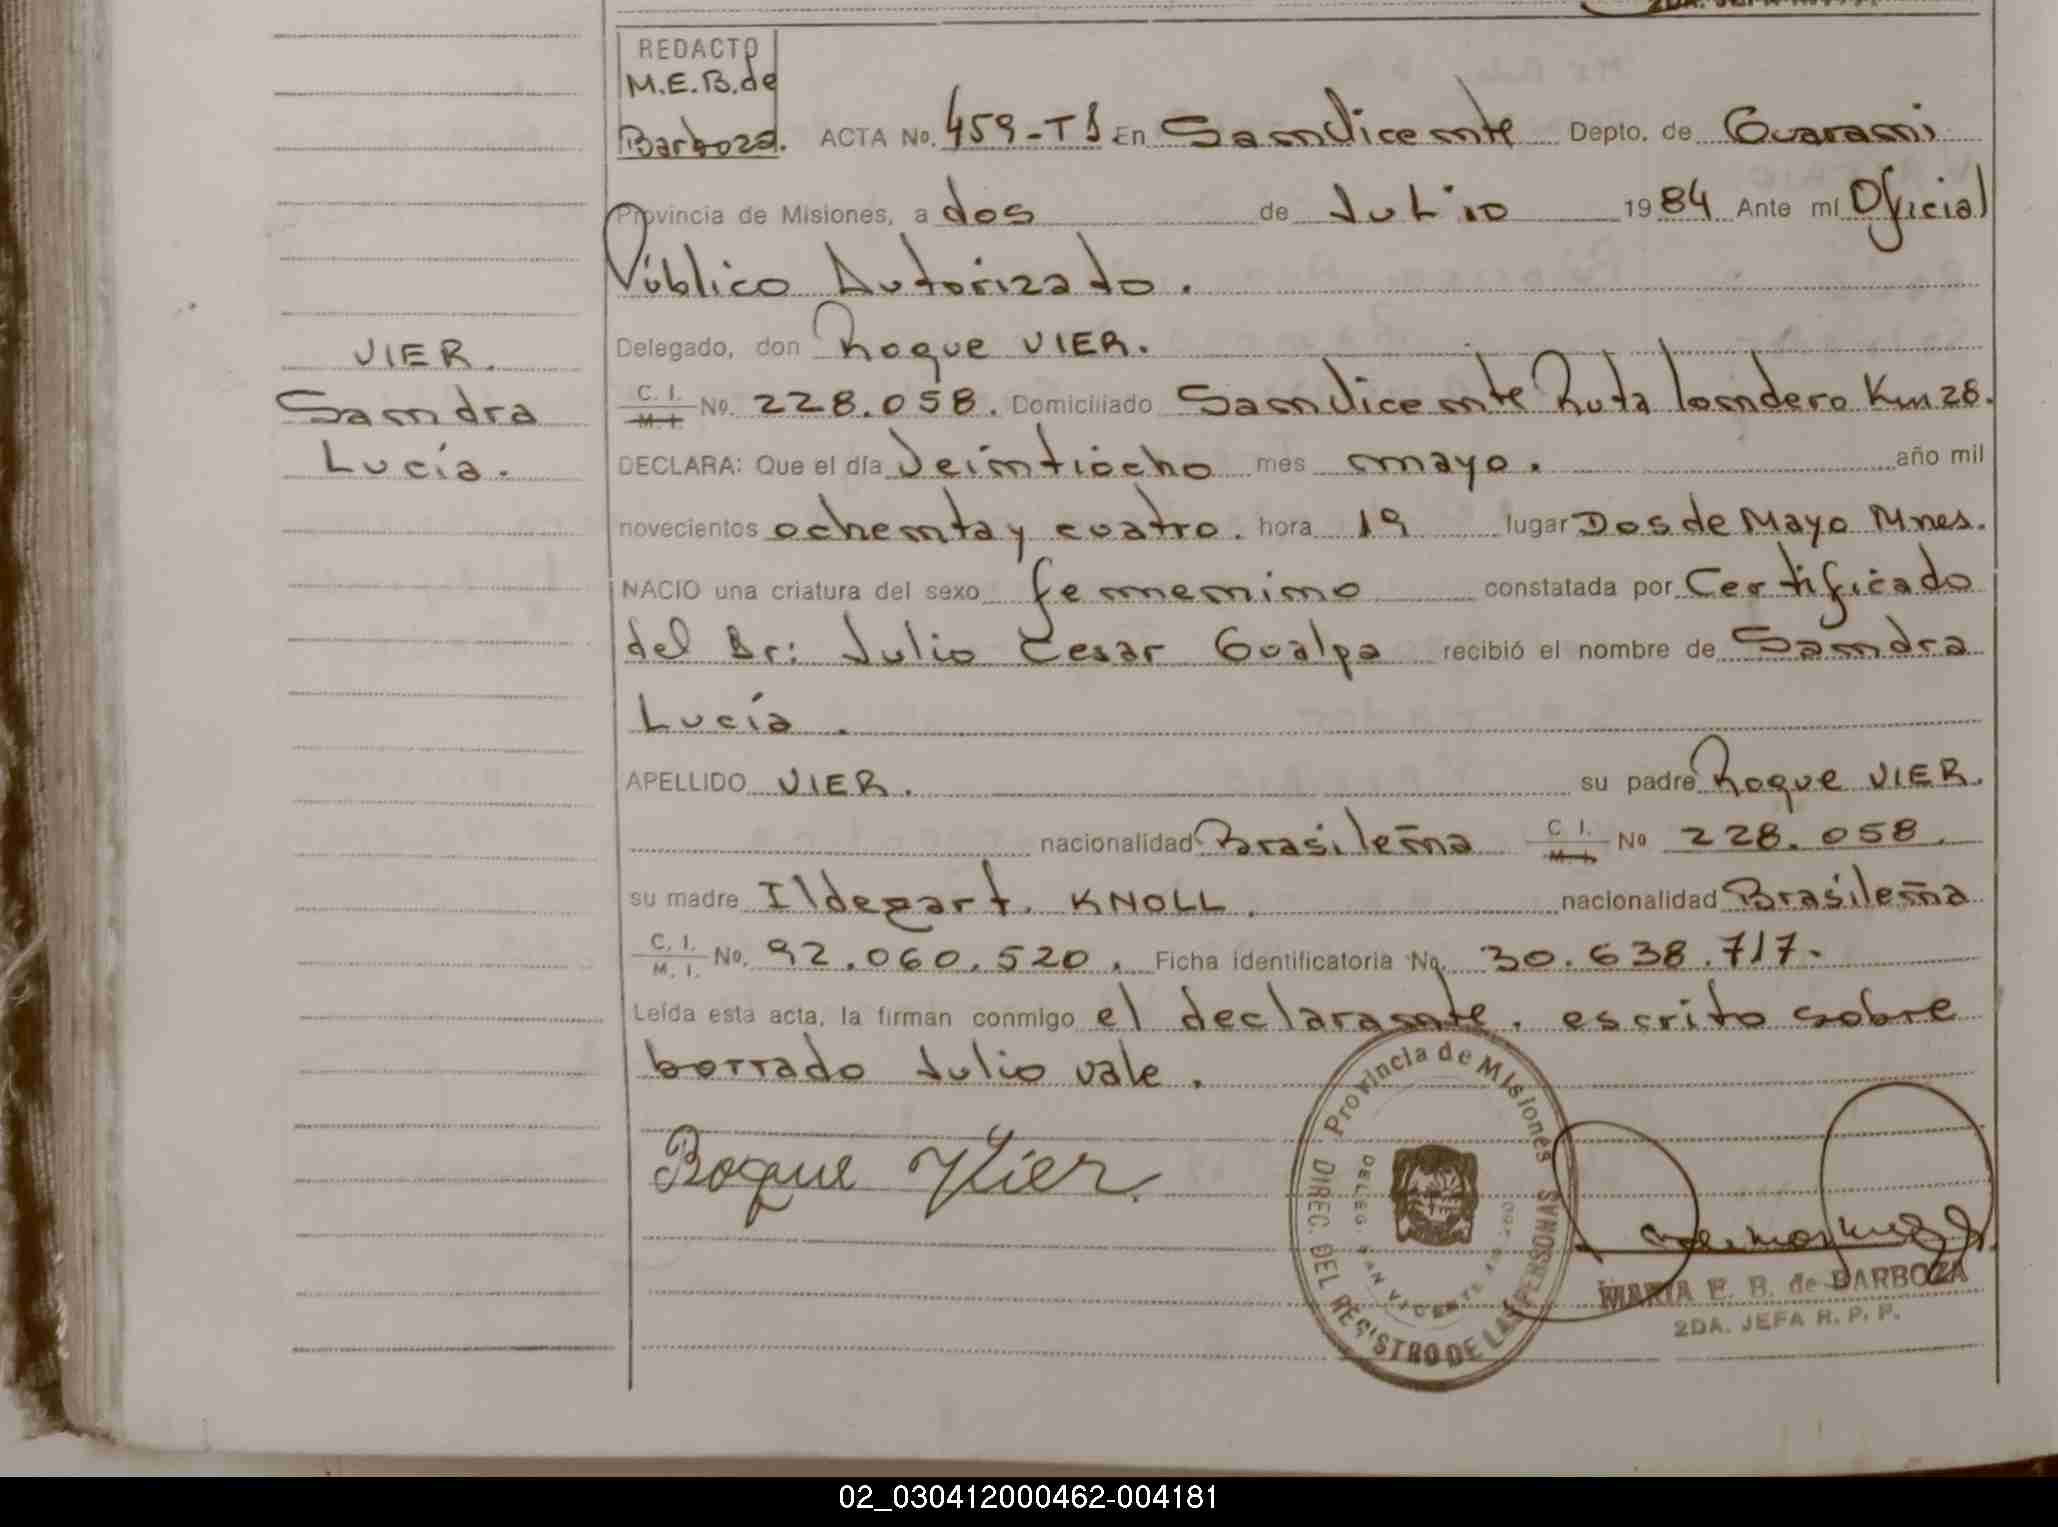 2DA. JEFA R. P. P.
REDACTO
M.E.B. de
Barboza. ACTA No. 459-T1 En San Vicente Depto. de Guaraní
Provincia de Misiones, a dos de Julio 1984 Ante mí Oficial
Público Autorizado.
Delegado, don Roque VIER.
C. I. M. I. No. 228.058. Domiciliado San Vicente Ruta londero Km 28.
VIER.
Sandra
Lucía.
DECLARA: Que el día Veintiocho mes mayo. año mil
novecientos ochenta y cuatro. hora 19 lugar Dos de Mayo Mnes.
NACIO una criatura del sexo femenino constatada por Certificado
del Dr: Julio Cesar Gualpa recibió el nombre de Sandra
Lucía.
APELLIDO VIER. su padre Roque VIER.
nacionalidad Brasileña C. I. M. I. No 228.058.
su madre Ildegart. KNOLL. nacionalidad Brasileña
C. I. M. I. No. 92.060.520. Ficha identificatoria No. 30.638.717.
Leída esta acta, la firman conmigo el declarante. escrito sobre
borrado Julio vale.
Roque Vier
Provincia de Misiones
DIREC. DEL REGISTRO DE LAS PERSONAS
DELEG. SAN VICENTE
MARIA E. B. de BARBOZA
2DA. JEFA R. P. P.
02_030412000462-004181